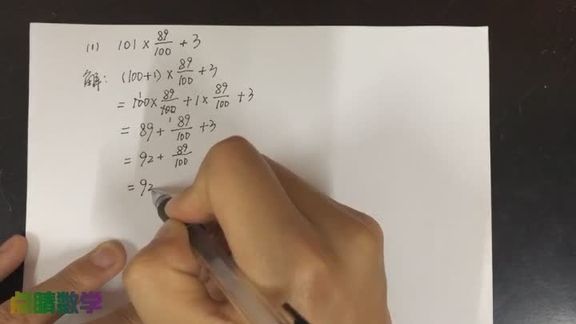 (1) 101 × 89/100 + 3
解: (100+1) × 89/100 + 3
= 100 × 89/100 + 1 × 89/100 + 3
= 89 + 89/100 + 3
= 92 + 89/100
= 92
点睛数学